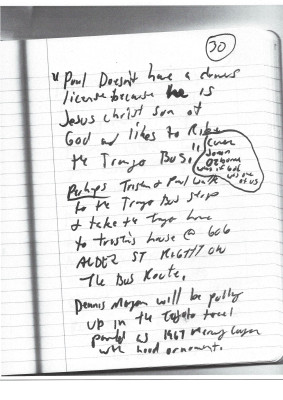 30
"Paul Doesn't have a drivers
license because he is
Jesus Christ son of
God and likes to Ride
the Trayo Bus."
Joan
Osborne
was one
of us
Perhaps Trish & Paul walk
to the Trayo Bus stop
& take the Trayo home
to Trish's house @ 606
ALDER ST RIGHT ON
The Bus Route.
Dennis Morgan will be pulling
UP in the
as 1967 Mercury Cougar
with hood ornament.